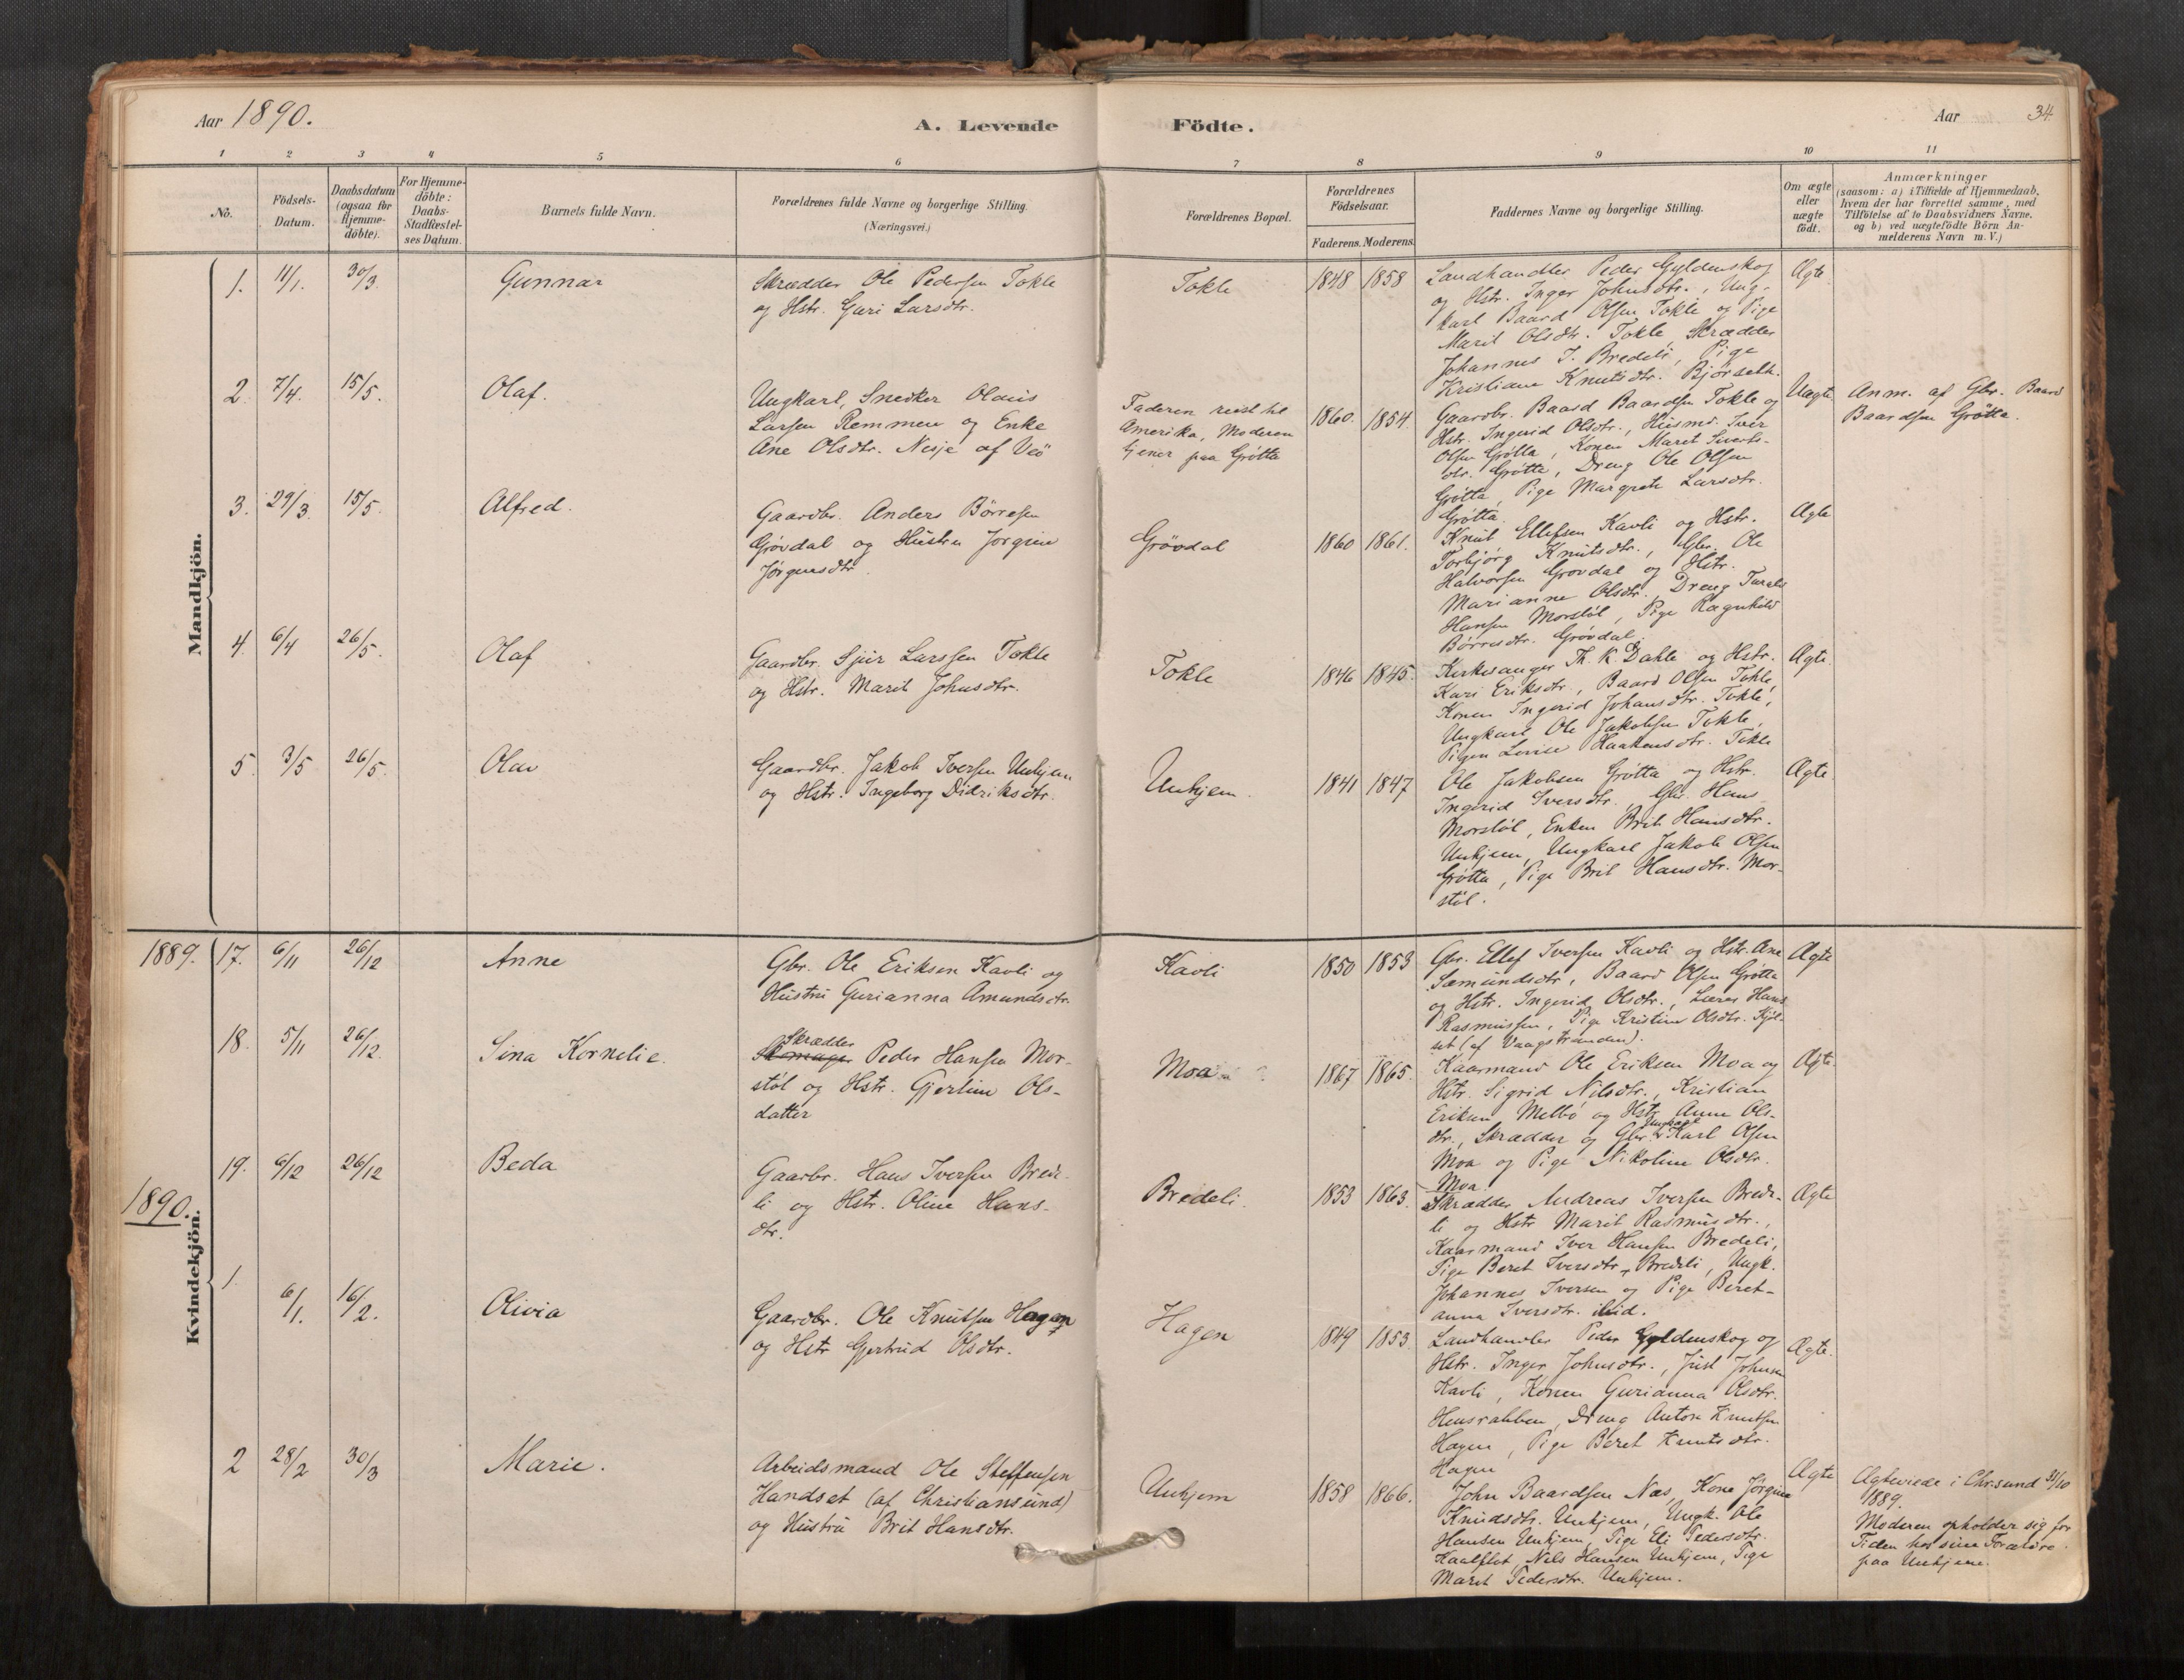 Aar 1890.
A. Levende Födte.
Aar 34
1 2 3 4 5 6 7 8 9 10 11
No.
Födsels-
Datum.
Daabsdatum
(ogsaa for
Hjemme-
döbte).
For Hjemme-
döbte:
Daabs-
Stadfæstel-
ses Datum.
Barnets fulde Navn.
Forældrenes fulde Navne og borgerlige Stilling.
(Næringsvei.)
Forældrenes Bopæl.
Forældrenes
Födselsaar.
Faderens. Moderens.
Faddernes Navne og borgerlige Stilling.
Om ægte
eller
uægte
födt.
Anmærkninger
(saasom: a) i Tilfælde af Hjemmedaab,
hvem der har forrettet samme, med
Tilföielse af to Daabsvidners Navne,
og b) ved uægtefödte Börn An-
melderens Navn m. V.)
Mandkjön.
1. 11/1. 30/3. Gunnar
Skrædder Ole Pedersen Tokle
og Hstr. Guri Larsdtr.
Tokle
1848 1858
Landhandler Peder Gyldenskog
og Hstr. Inger Johnsdtr., Ung-
karl Baard Olsen Tokle og Pige
Marit Olsdtr. Tokle, Skrædder
Johannes I. Bredeli, Pige
Kristiane Knutsdtr.
Ægte
2. 7/4. 15/5. Olaf.
Ungkarl, Snedker Olaus
Larsen Remmen og Enke
Ane Olsdtr. Nesje af Veö
Faderen reist til
Amerika, Moderen
tjener paa Grötta
1860. 1854.
Gaardbr. Baard Baardsen Tokle og
Hstr. Ingerid Olsdtr., Husmd. Iver
Olsen Grötta, Konen Marit Siverts-
dtr. Grötta, Dreng Ole Olsen
Grötta, Pige Margrete Larsdtr.
Grötta.
Uægte
Anm. af Gbr. Baard
Baardsen Grötta.
3. 29/3. 15/5. Alfred.
Gaardbr. Anders Börresen
Grövdal og Hustru Jorgine
Jørgensdtr.
Grövdal
1860 1861.
Knut Ellefsen Kavli og Hstr.
Torbjörg Knutsdtr., Gbr. Ole
Halvorsen Grovdal og Hstr.
Marianne Olsdtr., Dreng
Hansen Morstöl, Pige Ragnhild
Börresdtr. Grövdal.
Ægte
4. 6/4 26/5. Olaf
Gaardbr. Sjur Larssen Tokle
og Hstr. Marit Johnsdtr.
Tokle
1846 1845.
Kirkesanger Th. K. Dahle og Hstr.
Kari Eriksdtr., Baard Olsen Tokle,
Konen Ingerid Johansdtr. Tokle,
Ungkarl Ole Jakobsen Tokle,
Pigen Lovise Haakensdtr. Tokle
Ægte.
5. 3/5 26/5. Olav
Gaardbr. Jakob Iversen Unhjem
og Hstr. Ingeborg Didriksdtr.
Unhjem.
1841 1847
Ole Jakobsen Grötta og Hstr.
Ingerid Iversdtr., Gbr. Hans
Morstöl, Enken Brit Hansdtr.
Unhjem, Ungkarl Jakob Olsen
Grötta, Pige Brit Hansdtr. Mor-
stöl.
Ægte.
Kvindekjön.
1889. 17. 6/11 26/12 Anne
Gbr. Ole Eriksen Kavli og
Hustru Gurianna Amundsdtr.
Kavli
1850 1853
Gbr. Ellef Iversen Kavli og Hstr. Ane
Sæmundsdtr., Baard Olsen Grötta
og Hstr. Ingerid Olsdtr., Lærer Hans
Rasmussen, Pige Kristine Olsdtr. Kjöl-
set (af Vaagstranden).
Ægte
18. 5/11 26/12. Sina Kornelie.
Skrædder
Skomager Peder Hansen Mor-
stöl og Hstr. Gjertine Ols-
datter
Moa
1867 1865.
Kaarmand Ole Eriksen Moa og
Hstr. Sigrid Nilsdtr., Kristian
Eriksen Melbö og Hstr. Anne Ols-
dtr., Skrædder og Gbr. Ungkarl Karl Olsen
Moa og Pige Nikoline Olsdtr.
Moa.
Ægte.
19. 6/12 26/12 Beda
Gaarbr. Hans Iversen Brede-
li og Hstr. Oline Hans-
dtr.
Bredeli.
1853 1863.
Skrædder Andreas Iversen Brede-
li og Hstr Marit Rasmusdtr.,
Kaarmand Iver Hansen Bredeli,
Pige Beret Iversdtr. Bredeli, Ungk.
Johannes Iversen og Pige Beret-
anna Iversdtr. ibid.
Ægte
1890.
1. 6/1. 16/2. Olivia
Gaardbr. Ole Knutsen Hagen
og Hstr Gjertrud Olsdtr.
Hagen
1849 1853.
Landhandler Peder Gyldenskog og
Hstr. Inger Johnsdtr., Just Johnsen
Kavli, Konen Gurianna Olsdtr.
Hensrabben, Dreng Anton Knutsen
Hagen, Pige Beret Knutsdtr.
Hagen
Ægte.
2 28/2 30/3 Marie.
Arbeidsmand Ole Steffensen
Handset (af Christiansund)
og Hustru Brit Hansdtr.
Unhjem
1858 1866.
John Baardsen Næs, Kone Jörgine
Knudsdtr. Unhjem, Ungk. Ole
Hansen Unhjem, Pige Eli Pedersdtr.
Kaalflot, Nils Hansen Unhjem, Pige
Marit Pedersdtr. Unhjem.
Ægte
Ægteviede i Chr.sund 31/10
1889.
Moderen opholder sig for
Tiden hos sine Forældre
paa Unhjem.